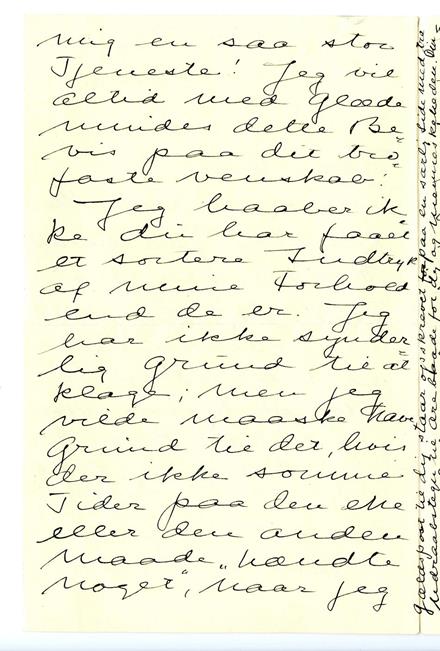 mig en saa stor
Tjeneste! Jeg vil
altid med Glæde
mindes dette Be-
vis paa dit tro-
faste Venskab!
Jeg haaber ik-
ke du har faaet
et sortere Indtryk
af mine Forhold
end de er. Jeg
har ikke synder-
lig Grund til at
klage; men jeg
vilde maaske have
Grund til det, hvis
der ikke somme
Tider paa den ene
eller den anden
Maade „hændte
noget", naar jeg
staar opskrevet paa en særlig Side med tre